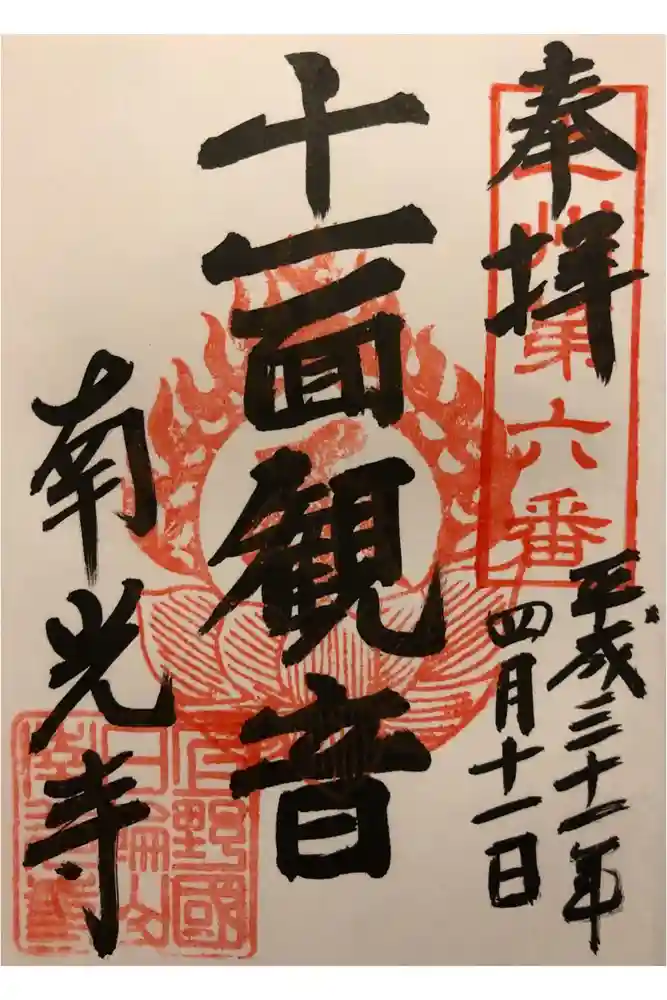 奉拝
上州第六番
平成三十一年
四月十一日
十一面観音
南光寺
上野國
日輪山